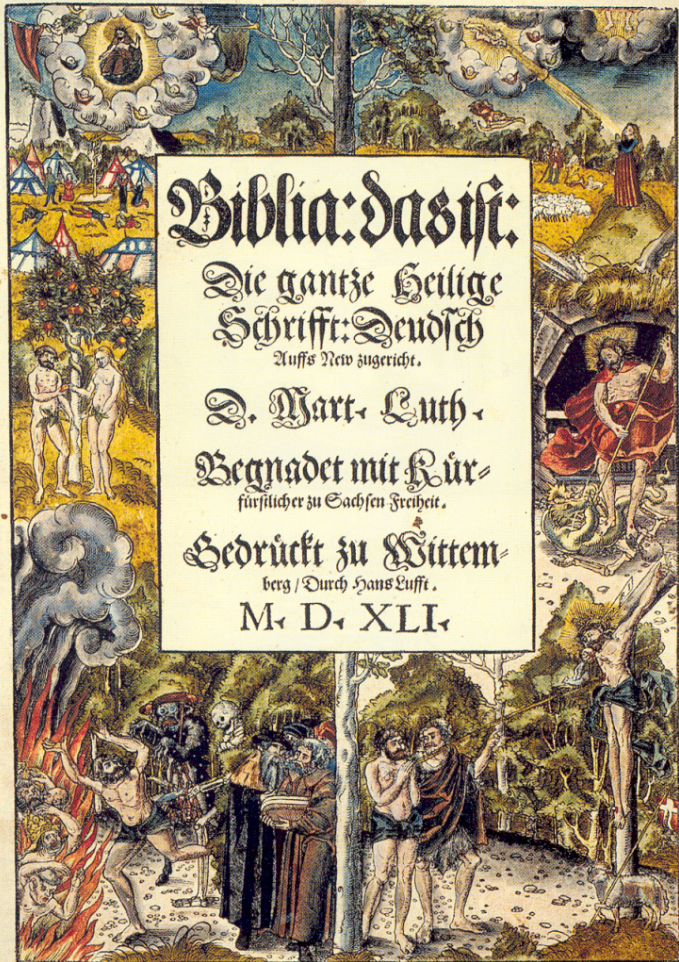 Biblia: das ist:
Die gantze Heilige
Schrifft: Deudsch
Auffs New zugericht.
D. Mart. Luth.
Begnadet mit Kür-
fürstlicher zu Sachsen Freiheit.
Gedrückt zu Wittem-
berg / Durch Hans Lufft.
M. D. XLI.